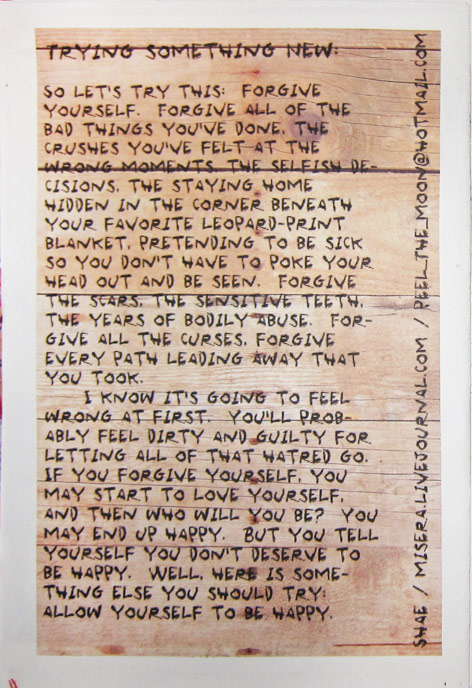 TRYING SOMETHING NEW:
SO LET'S TRY THIS: FORGIVE
YOURSELF. FORGIVE ALL OF THE
BAD THINGS YOU'VE DONE, THE
CRUSHES YOU'VE FELT AT THE
WRONG MOMENTS, THE SELFISH DE-
CISIONS, THE STAYING HOME
HIDDEN IN THE CORNER BENEATH
YOUR FAVORITE LEOPARD-PRINT
BLANKET, PRETENDING TO BE SICK
SO YOU DON'T HAVE TO POKE YOUR
HEAD OUT AND BE SEEN. FORGIVE
THE SCARS, THE SENSITIVE TEETH,
THE YEARS OF BODILY ABUSE. FOR-
GIVE ALL THE CURSES, FORGIVE
EVERY PATH LEADING AWAY THAT
YOU TOOK.
I KNOW IT'S GOING TO FEEL
WRONG AT FIRST. YOU'LL PROB-
ABLY FEEL DIRTY AND GUILTY FOR
LETTING ALL OF THAT HATRED GO.
IF YOU FORGIVE YOURSELF, YOU
MAY START TO LOVE YOURSELF,
AND THEN WHO WILL YOU BE? YOU
MAY END UP HAPPY. BUT YOU TELL
YOURSELF YOU DON'T DESERVE TO
BE HAPPY. WELL, HERE IS SOME-
THING ELSE YOU SHOULD TRY:
ALLOW YOURSELF TO BE HAPPY.
SHAE / MISERA.LIVEJOURNAL.COM / PEEL_THE_MOON@HOTMAIL.COM